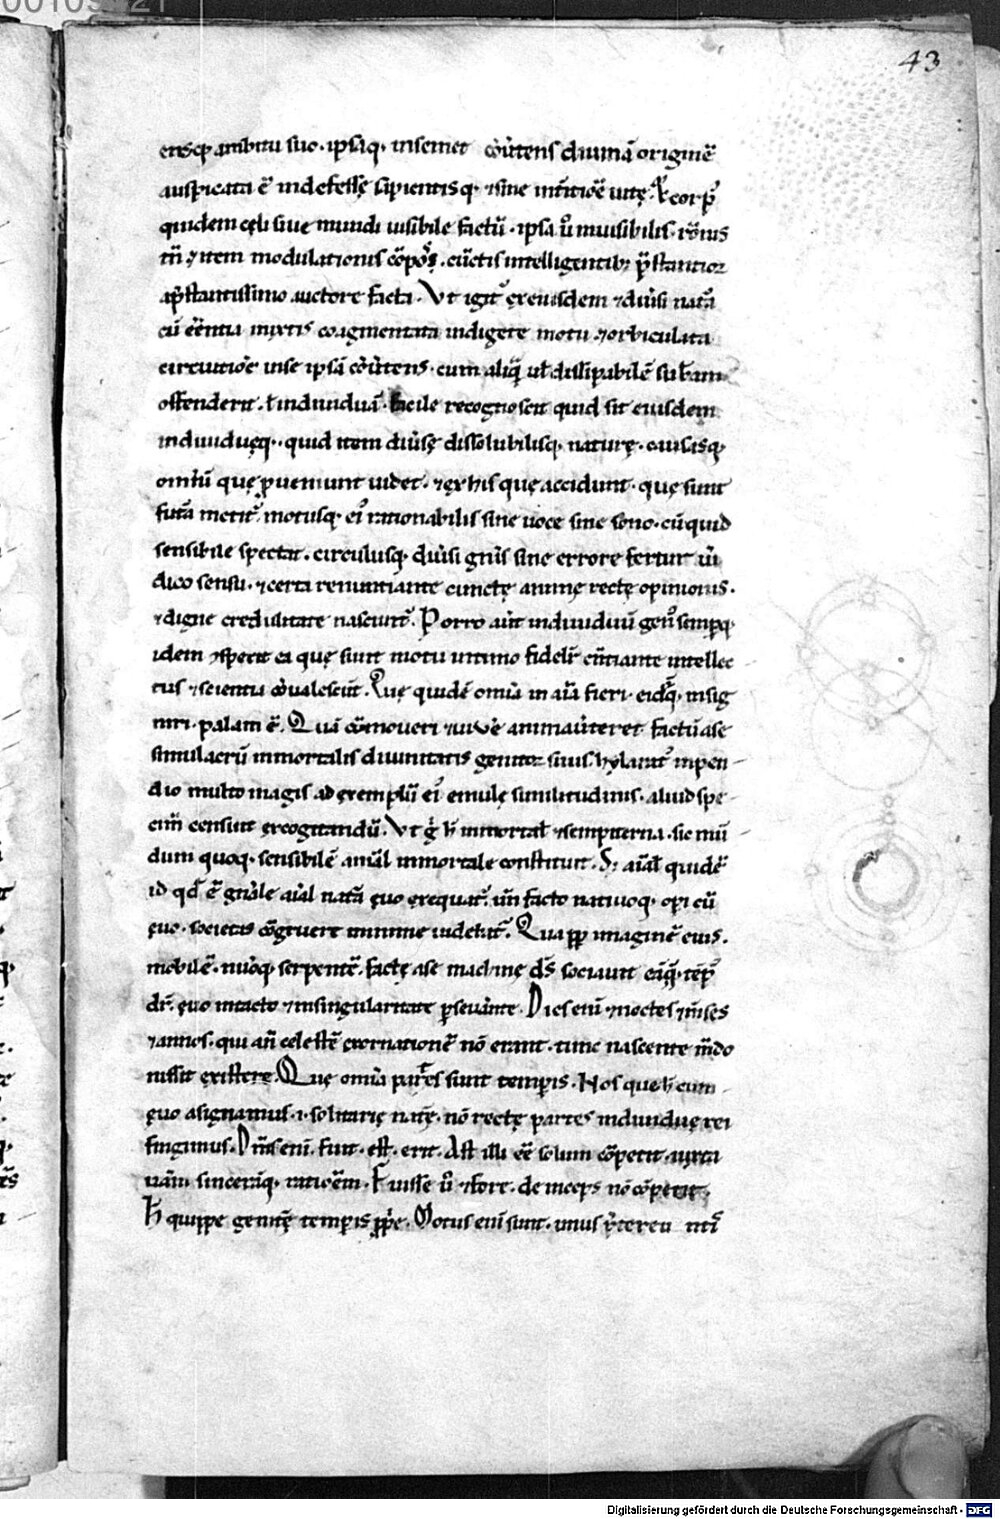 43
ensq; ambitu suo · ipsaq; · insemet cōūtens diuinā originē
auspicata ē indefessę sipientisq; · ⁊sine int̄mitiōe uitę. Et corp̄
quidem cęli siue mundi uisibile factū · ipsa ū inuisibilis · rōnis
tn̄ ⁊item modulationis cōpōs · cūctis intelligentib; p̄stantior
a p̄stantissimo auctore facta. Vt igit̄ ex eiusdem ⁊diūsi natā
cū eēntia mixtis coagmentata indigete motu ⁊orbiculata
circuitiōe inse ipsā cōūtens · cum aliquā ul̄ dissipabilē sub̄am
offenderit · ł indiuiduā · facile recognoscit quid sit eiusdem
indiuiduęq; · quid item diūsę dissolubilisq; naturę · causasq;
omniū quę p̱ueniunt uidet · ⁊ex his quę accidunt · quę sunt
futā metit̄ · motusq; ei᷒ rationabilis sine uoce sine sono · cū quid
sensibile spectat · circulusq; diūsi gn̄is sine errore fertur ūi
dico sensu · ⁊certa renuntiante cunctę animę rectę opinionis ·
⁊dignę credulitate nascunt̄. Porro aūt indiuiduū gen᷒ semp̱q;
idem ⁊spexit ea quę sunt motu intimo fidelit̄ en̄tiante intellec
tus ⁊scientia cōualescūt. Quę quidē om̄ia in aīa fieri · eidēq; insig
niri · palam ē. Quā cōmoueri ⁊uiūe animaūteret factū a se
simulacrū inmortalis diuinitatis genitor suus · hylarat᷒ inpen
dio multo magis ad exemplū ei᷒ emulę similitudinis · aliud spe
cim̄ censuit excogitandū. Vt g̊ h̄ inmortal̄ ⁊sempiterna · sic mū
dum quoq; sensibilē anīal inmortale constituit. Sꝫ aīal quidē
id qd̄ ē gn̄ale aīal natā ęuo exequat̄. un̄ facto natiuoq; op̱i cū
ęuo · societas cōgruere minime uidebat̄. Qua p̱p̱ imaginē eius ·
mobilē · nūoq; serpentē · factę a se machinę d̄s sociauit eāq; · tēp᷒
dr̄ · ęuo intacto ⁊insingularitate p̱seuāte. Dies eni ⁊noctes ⁊m̄ses
⁊annos · qui an̄ celestē exornationē nō erant · tunc nascente m̄do
iussit existere. Quę om̄ia partes sunt temporis. Nos que h̄ cum
ęuo asignamus · i · solitarię natę · nō rectę partes indiuiduę rei
fingimus. Dm̄s eni · fuit · est · erit. Ast illi eē solum cōpetit iuxta
uām sincerāq; ratiōem. Fuisse ū ⁊fore · deinceps nō cōpetit ·
H̄ quippe genitę temporis p̱p̱e. Motus eni sunt · unus p̱tereu nti᷒
Digitalisierung gefördert durch die Deutsche Forschungsgemeinschaft - DFG